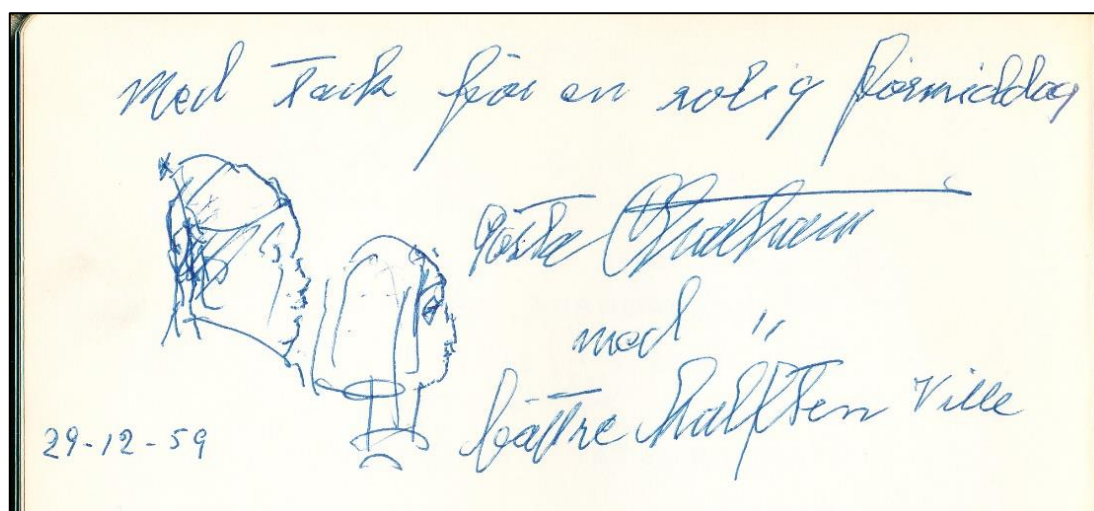 Med tack för en rolig förmiddag
Gösta
med "
bättre hälften Ville
29-12-59